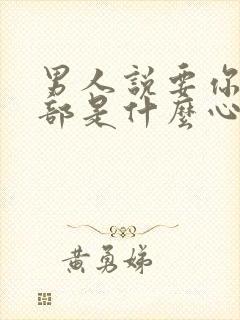 男人說要你
部是什麼心
黃勇娣